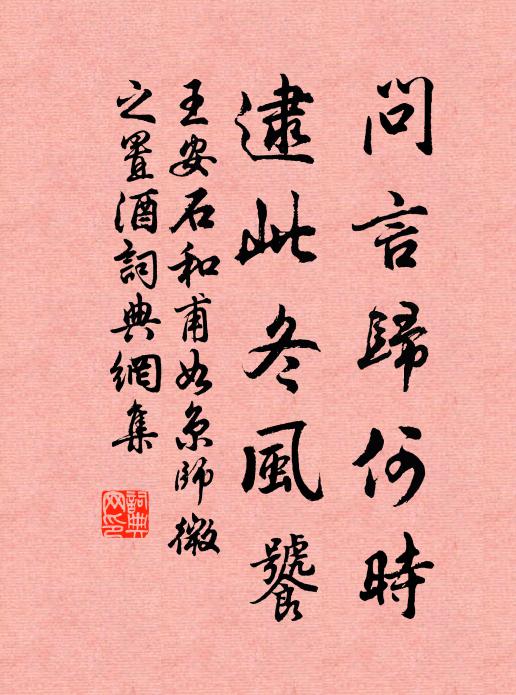 問言歸何時
逮此冬風饕
王安石和甫如京師微
之置酒詞典網集
詞典
网印